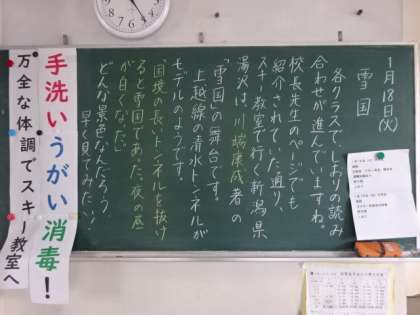 1月18日(火)
雪国
各クラスでしおりの読み
合わせが進んでいますね。
校長先生のページでも
紹介されていた通り、
スキー教室で行く新潟県
湯沢は、川端康成著の
「雪国」の舞台です。
上越線の清水トンネルが
モデルのようです。
「国境の長いトンネルを抜け
ると雪国であった。夜の底
が白くなった。」
どんな景色なんだろう!
早く見てみた
手洗いうがい消毒!
万全な体調でスキー教室へ